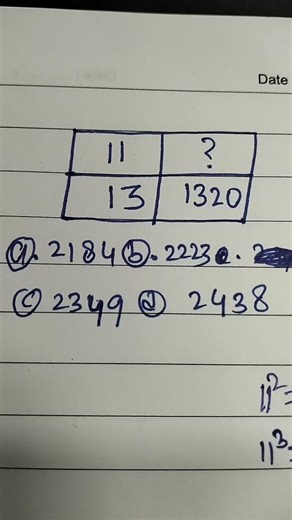 Date
11 ?
13 1320
a. 2184 b. 2223 c.
c 2349 d 2438
11²=
11³=